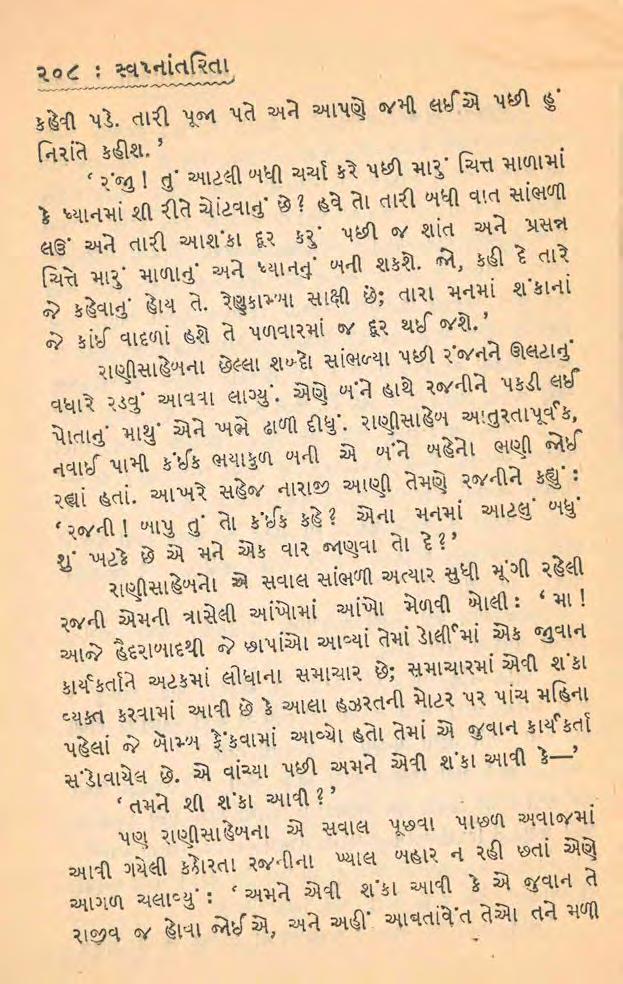 ૨૦૮ : સ્વપ્નાંતરિતા
કહેવી પડે. તારી પૂજા પતે અને આપણે જમી લઈએ પછી હું
નિરાંતે કહીશ.’
‘રંજુ! તું આટલી બધી ચર્ચા કરે પછી મારું ચિત્ત માળામાં
કે ધ્યાનમાં શી રીતે ચોંટવાનું છે? હવે તો તારી બધી વાત સાંભળી
લઉં અને તારી આશંકા દૂર કરું પછી જ શાંત અને પ્રસન્ન
ચિત્તે મારું માળાનું અને ધ્યાનનું બની શકશે. જો, કહી દે તારે
જે કહેવાનું હોય તે. રેણુકામ્બા સાક્ષી છે; તારા મનમાં શંકાનાં
જે કાંઈ વાદળાં હશે તે પળવારમાં જ દૂર થઈ જશે.’
રાણીસાહેબના છેલ્લા શબ્દો સાંભળ્યા પછી રંજનને ઊલટાનું
વધારે રડવું આવવા લાગ્યું. એણે બંને હાથે રજનીને પકડી લઈ
પોતાનું માથું એને ખભે ઢાળી દીધું. રાણીસાહેબ આતુરતાપૂર્વક,
નવાઈ પામી કંઈક ભયાકુળ બની એ બંને બહેનો ભણી જોઈ
રહ્યાં હતાં. આખરે સહેજ નારાજી આણી તેમણે રજનીને કહ્યું :
‘રજની! બાપુ તું તો કંઈક કહે? એના મનમાં આટલું બધું
શું ખટકે છે એ મને એક વાર જાણવા તો દે?’
રાણીસાહેબનો એ સવાલ સાંભળી અત્યાર સુધી મૂંગી રહેલી
રજની એમની ત્રાસેલી આંખોમાં આંખો મેળવી બોલી : ‘મા!
આજે હૈદરાબાદથી જે છાપાંઓ આવ્યાં તેમાં ડોર્લીમાં એક જુવાન
કાર્યકર્તાને અટકમાં લીધાના સમાચાર છે; સમાચારમાં એવી શંકા
વ્યક્ત કરવામાં આવી છે કે આલા હઝરતની મોટર પર પાંચ મહિના
પહેલાં જે બોમ્બ ફેંકવામાં આવ્યો હતો તેમાં એ જુવાન કાર્યકર્તા
સંડોવાયેલ છે. એ વાંચ્યા પછી અમને એવી શંકા આવી કે—’
‘તમને શી શંકા આવી?’
પણ રાણીસાહેબના એ સવાલ પૂછવા પાછળ અવાજમાં
આવી ગયેલી કઠોરતા રજનીના ખ્યાલ બહાર ન રહી છતાં એણે
આગળ ચલાવ્યું : ‘અમને એવી શંકા આવી કે એ જુવાન તે
રાજીવ જ હોવા જોઈએ, અને અહીં આવતાંવેંત તેઓ તને મળી